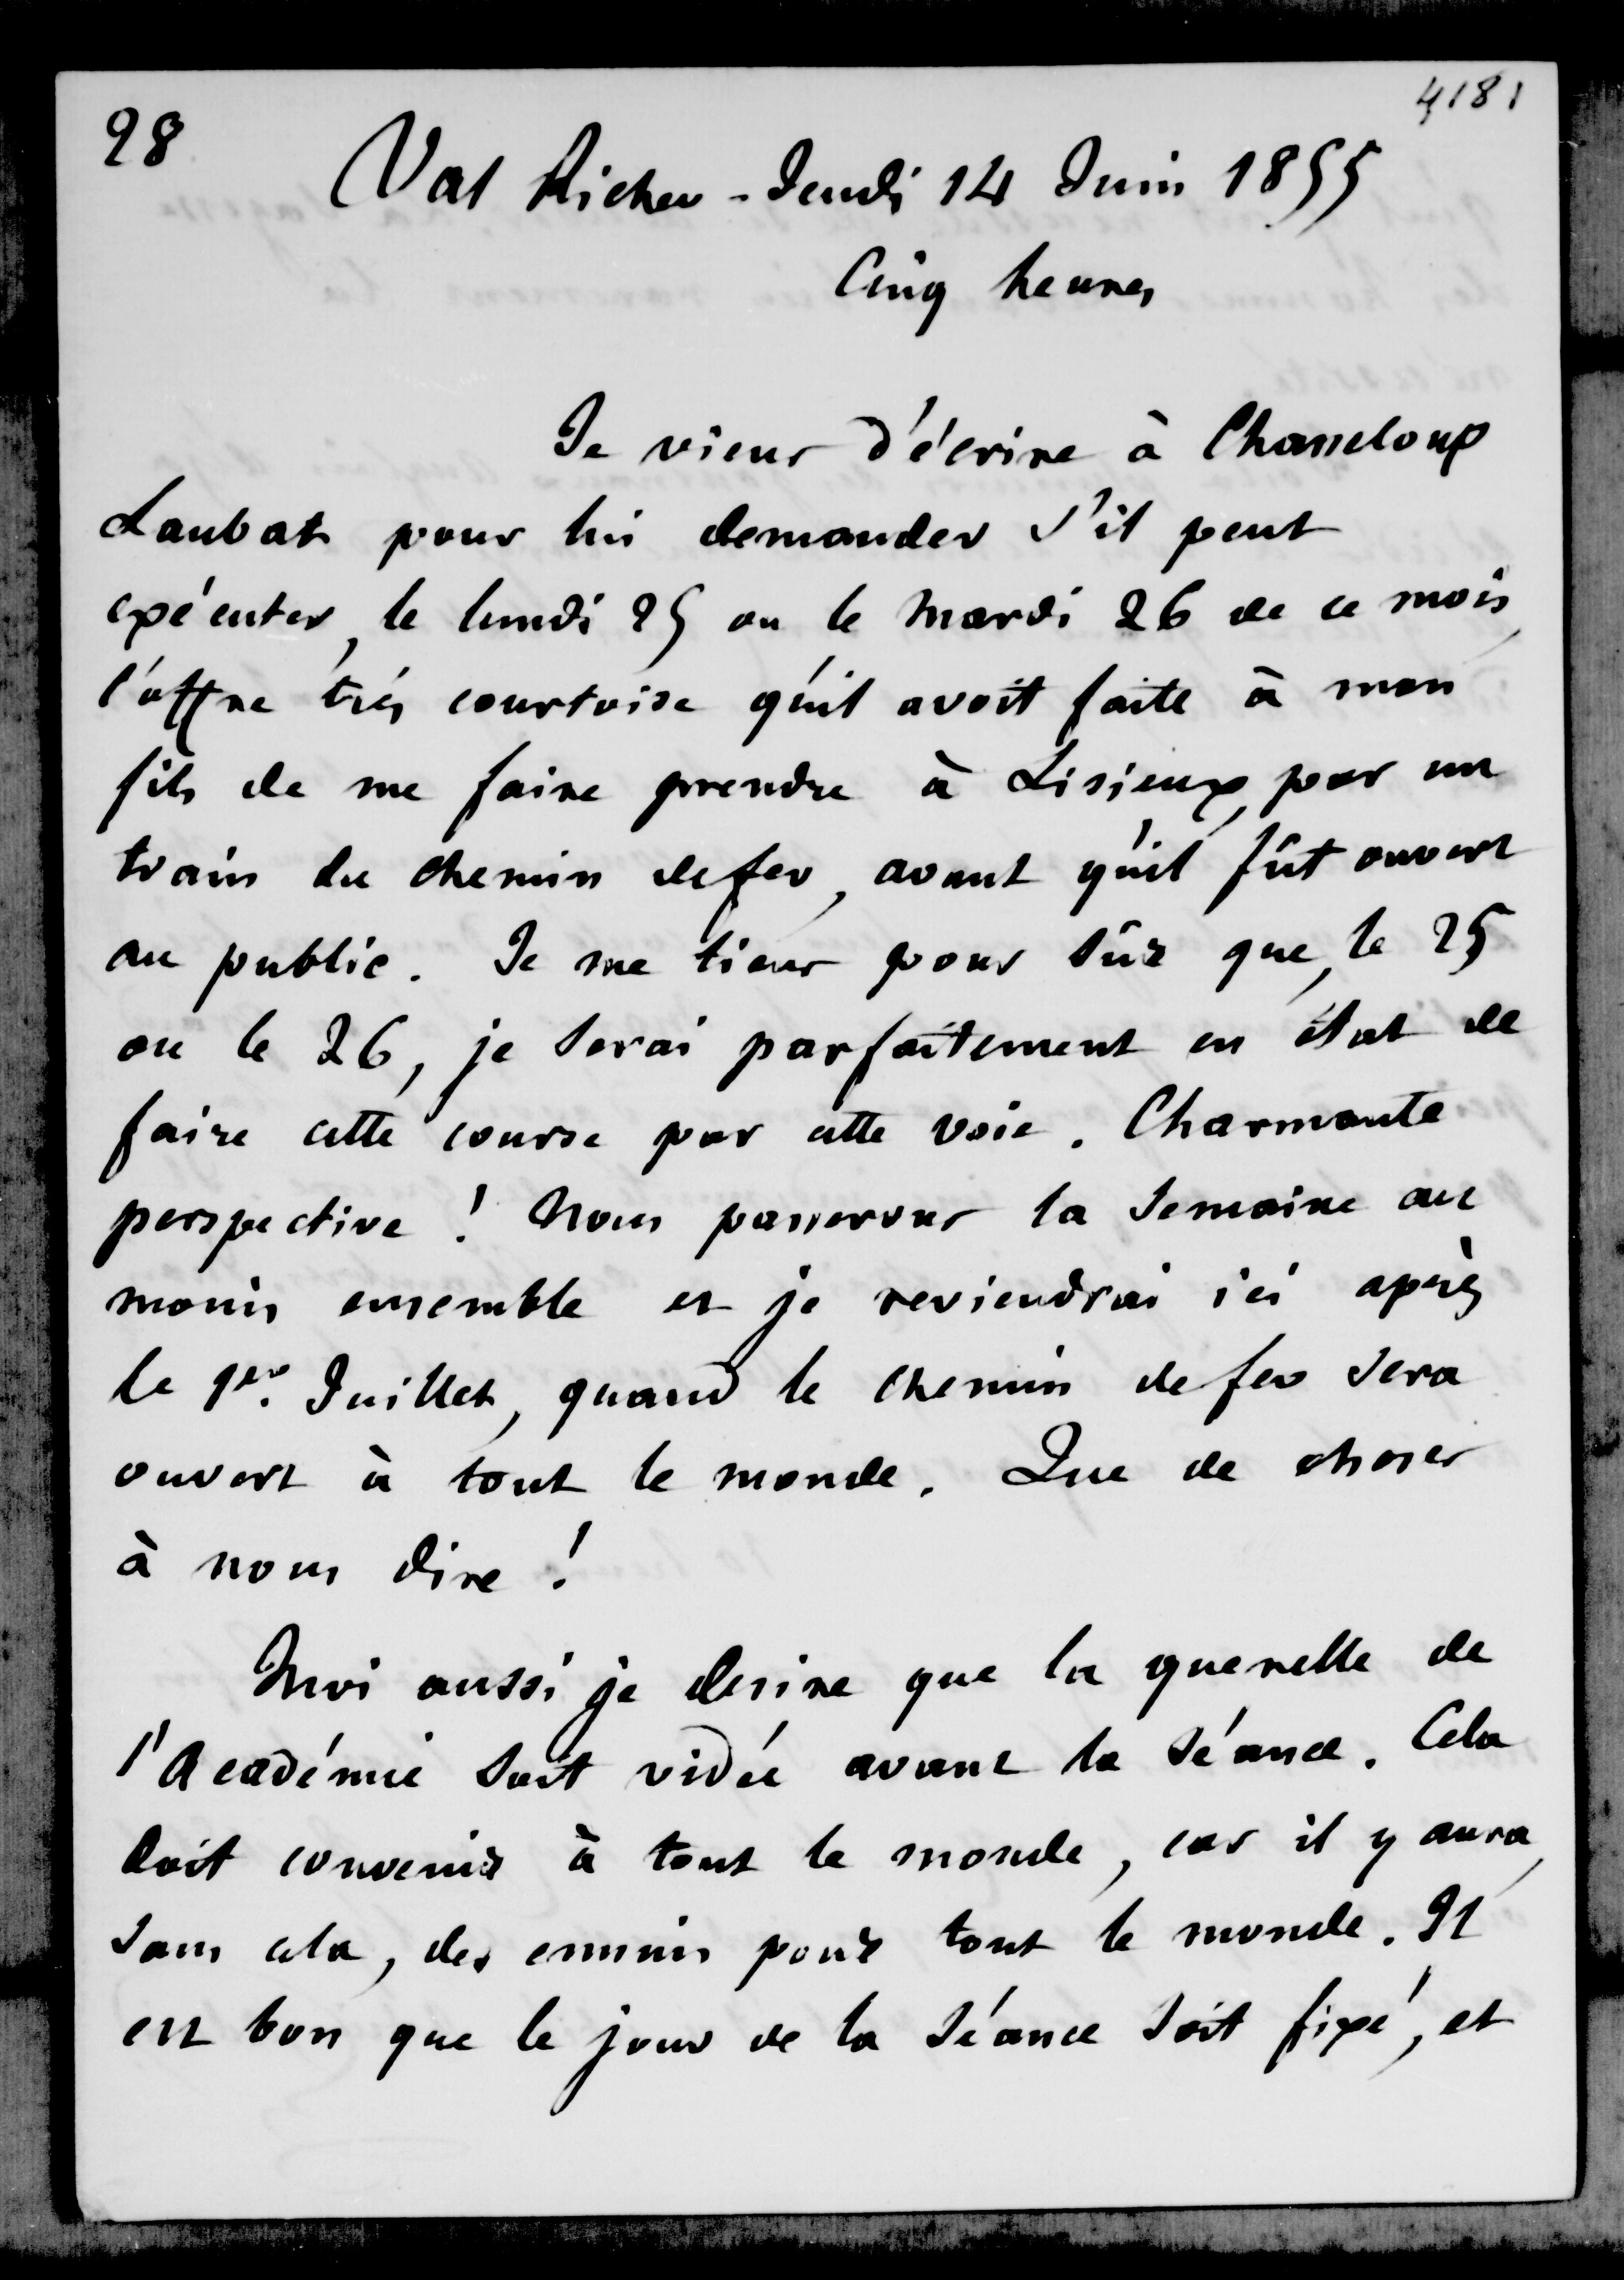 4181
28
Val Richer - Jeudi 14 Juin 1855
Cinq heures
Je viens d'écrire à Chasseloup
Laubat pour lui demander s'il peut
exécuter, le lundi 25 ou le Mardi 26 de ce mois,
l'offre très courtoise qu'il avoit faite à mon
fils de me faire prendre à Lisieux, par un
train du chemin de fer, avant qu'il fût ouvert
au public. Je me tiens pour sûr que, le 25
ou le 26, je serai parfaitement en état de
faire cette course par cette voie. Charmante
perspective ! Nous passerons la semaine au
moins ensemble et je reviendrai ici après
le 1er. Juillet, quand le chemin de fer sera
ouvert à tout le monde. Que de choses
à nous dire !
Moi aussi je desire que la querelle de
l'Académie soit vidée avant la séance. Cela
doit convenir à tout le monde, car il y aura,
sans cela, des ennuis pour tout le monde. Il
est bon que le jour de la séance soit fixé, et